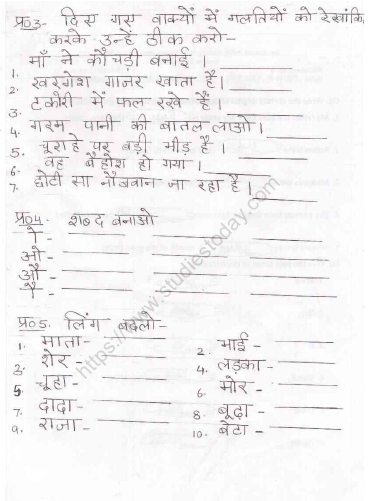 प्र०3- दिए गए वाक्यों में गलतियों को रेखांकि
करके उन्हें ठीक करो-
1. माँ ने कौचड़ी बनाई ।
2. खरगेश गाजर खाता है ।
3. टकोरी में फल रखे हैं ।
4. गरम पानी की बातल लाओ ।
5. चूराहे पर बड़ी भीड़ है ।
6. वह बैहोश हो गया ।
7. छोटी सा नौववान जा रहा है ।
प्र०4- शब्द बनाओ
ो -
ओ -
औ -
ौ -
प्र०5. लिंग बदलो-
1. माता- 2. भाई -
3. शेर - 4. लड़का -
5 चूहा - 6. मोर -
7. दादा - 8. बूढ़ा -
9. राजा - 10. बेटा -
https://www.studiestoday.com